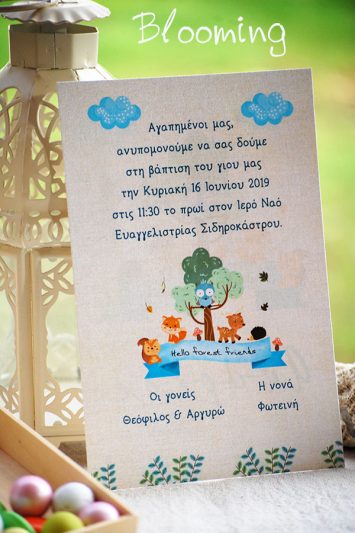 Blooming
Αγαπημένοι μας,
ανυπομονούμε να σας δούμε
στη βάπτιση του γιου μας
την Κυριακή 16 Ιουνίου 2019
στις 11:30 το πρωί στον Ιερό Ναό
Ευαγγελιστρίας Σιδηροκάστρου.
Hello forest friends
Οι γονείς
Θεόφιλος & Αργυρώ
Η νονά
Φωτεινή